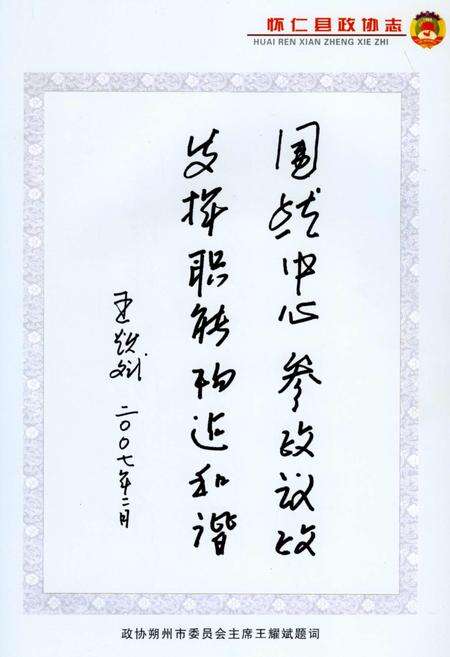 怀仁县政协志
HUAI REN XIAN ZHENG XIE ZHI
围绕中心参政议政
发挥职能构造和谐
王耀斌
二〇〇七年二月
政协朔州市委员会主席王耀斌题词